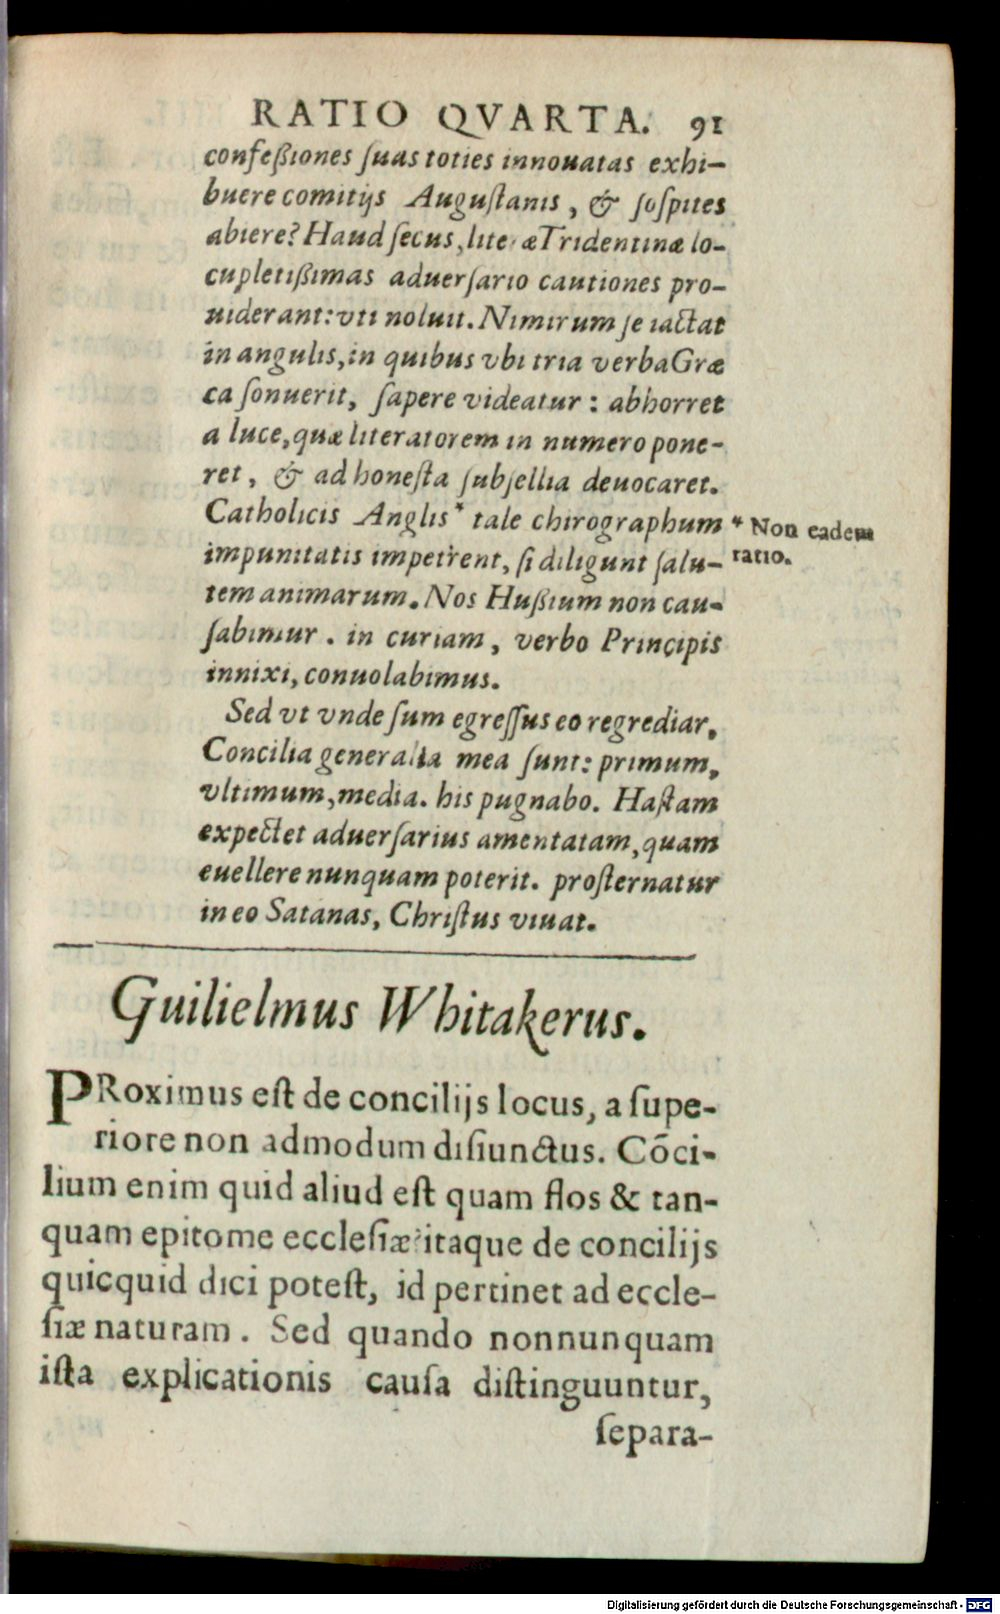 RATIO QVARTA. 91
confeßiones ſuas toties innouatas exhi-
buere comitijs Auguſtanis, & ſoſpites
abiere? Haud ſecus, literæ Tridentinæ lo-
cupletißimas aduerſario cautiones pro-
uiderant: vti noluit. Nimirum ſe iactat
in angulis, in quibus vbi tria verba Græ
ca ſonuerit, ſapere videatur: abhorret
a luce, quæ literatorem in numero pone-
ret, & ad honeſta ſubſellia deuocaret.
Catholicis Anglis* tale chirographum
* Non eadem
ratio.
impunitatis impetrent, ſi diligunt ſalu-
tem animarum. Nos Hußium non cau-
ſabimur. in curiam, verbo Principis
innixi, conuolabimus.
Sed vt vnde ſum egreſſus eo regrediar,
Concilia generalia mea ſunt: primum,
vltimum, media. his pugnabo. Haſtam
expectet aduerſarius amentatam, quam
euellere nunquam poterit. proſternatur
in eo Satanas, Chriſtus viuat.
Guilielmus Whitakerus.
PRoximus eſt de concilijs locus, a ſupe-
riore non admodum diſiunctus. Cōci-
lium enim quid aliud eſt quam flos & tan-
quam epitome eccleſiæ? itaque de concilijs
quicquid dici poteſt, id pertinet ad eccle-
ſiæ naturam. Sed quando nonnunquam
iſta explicationis cauſa diſtinguuntur,
ſepara-
Digitalisierung gefördert durch die Deutsche Forschungsgemeinschaft - DFG